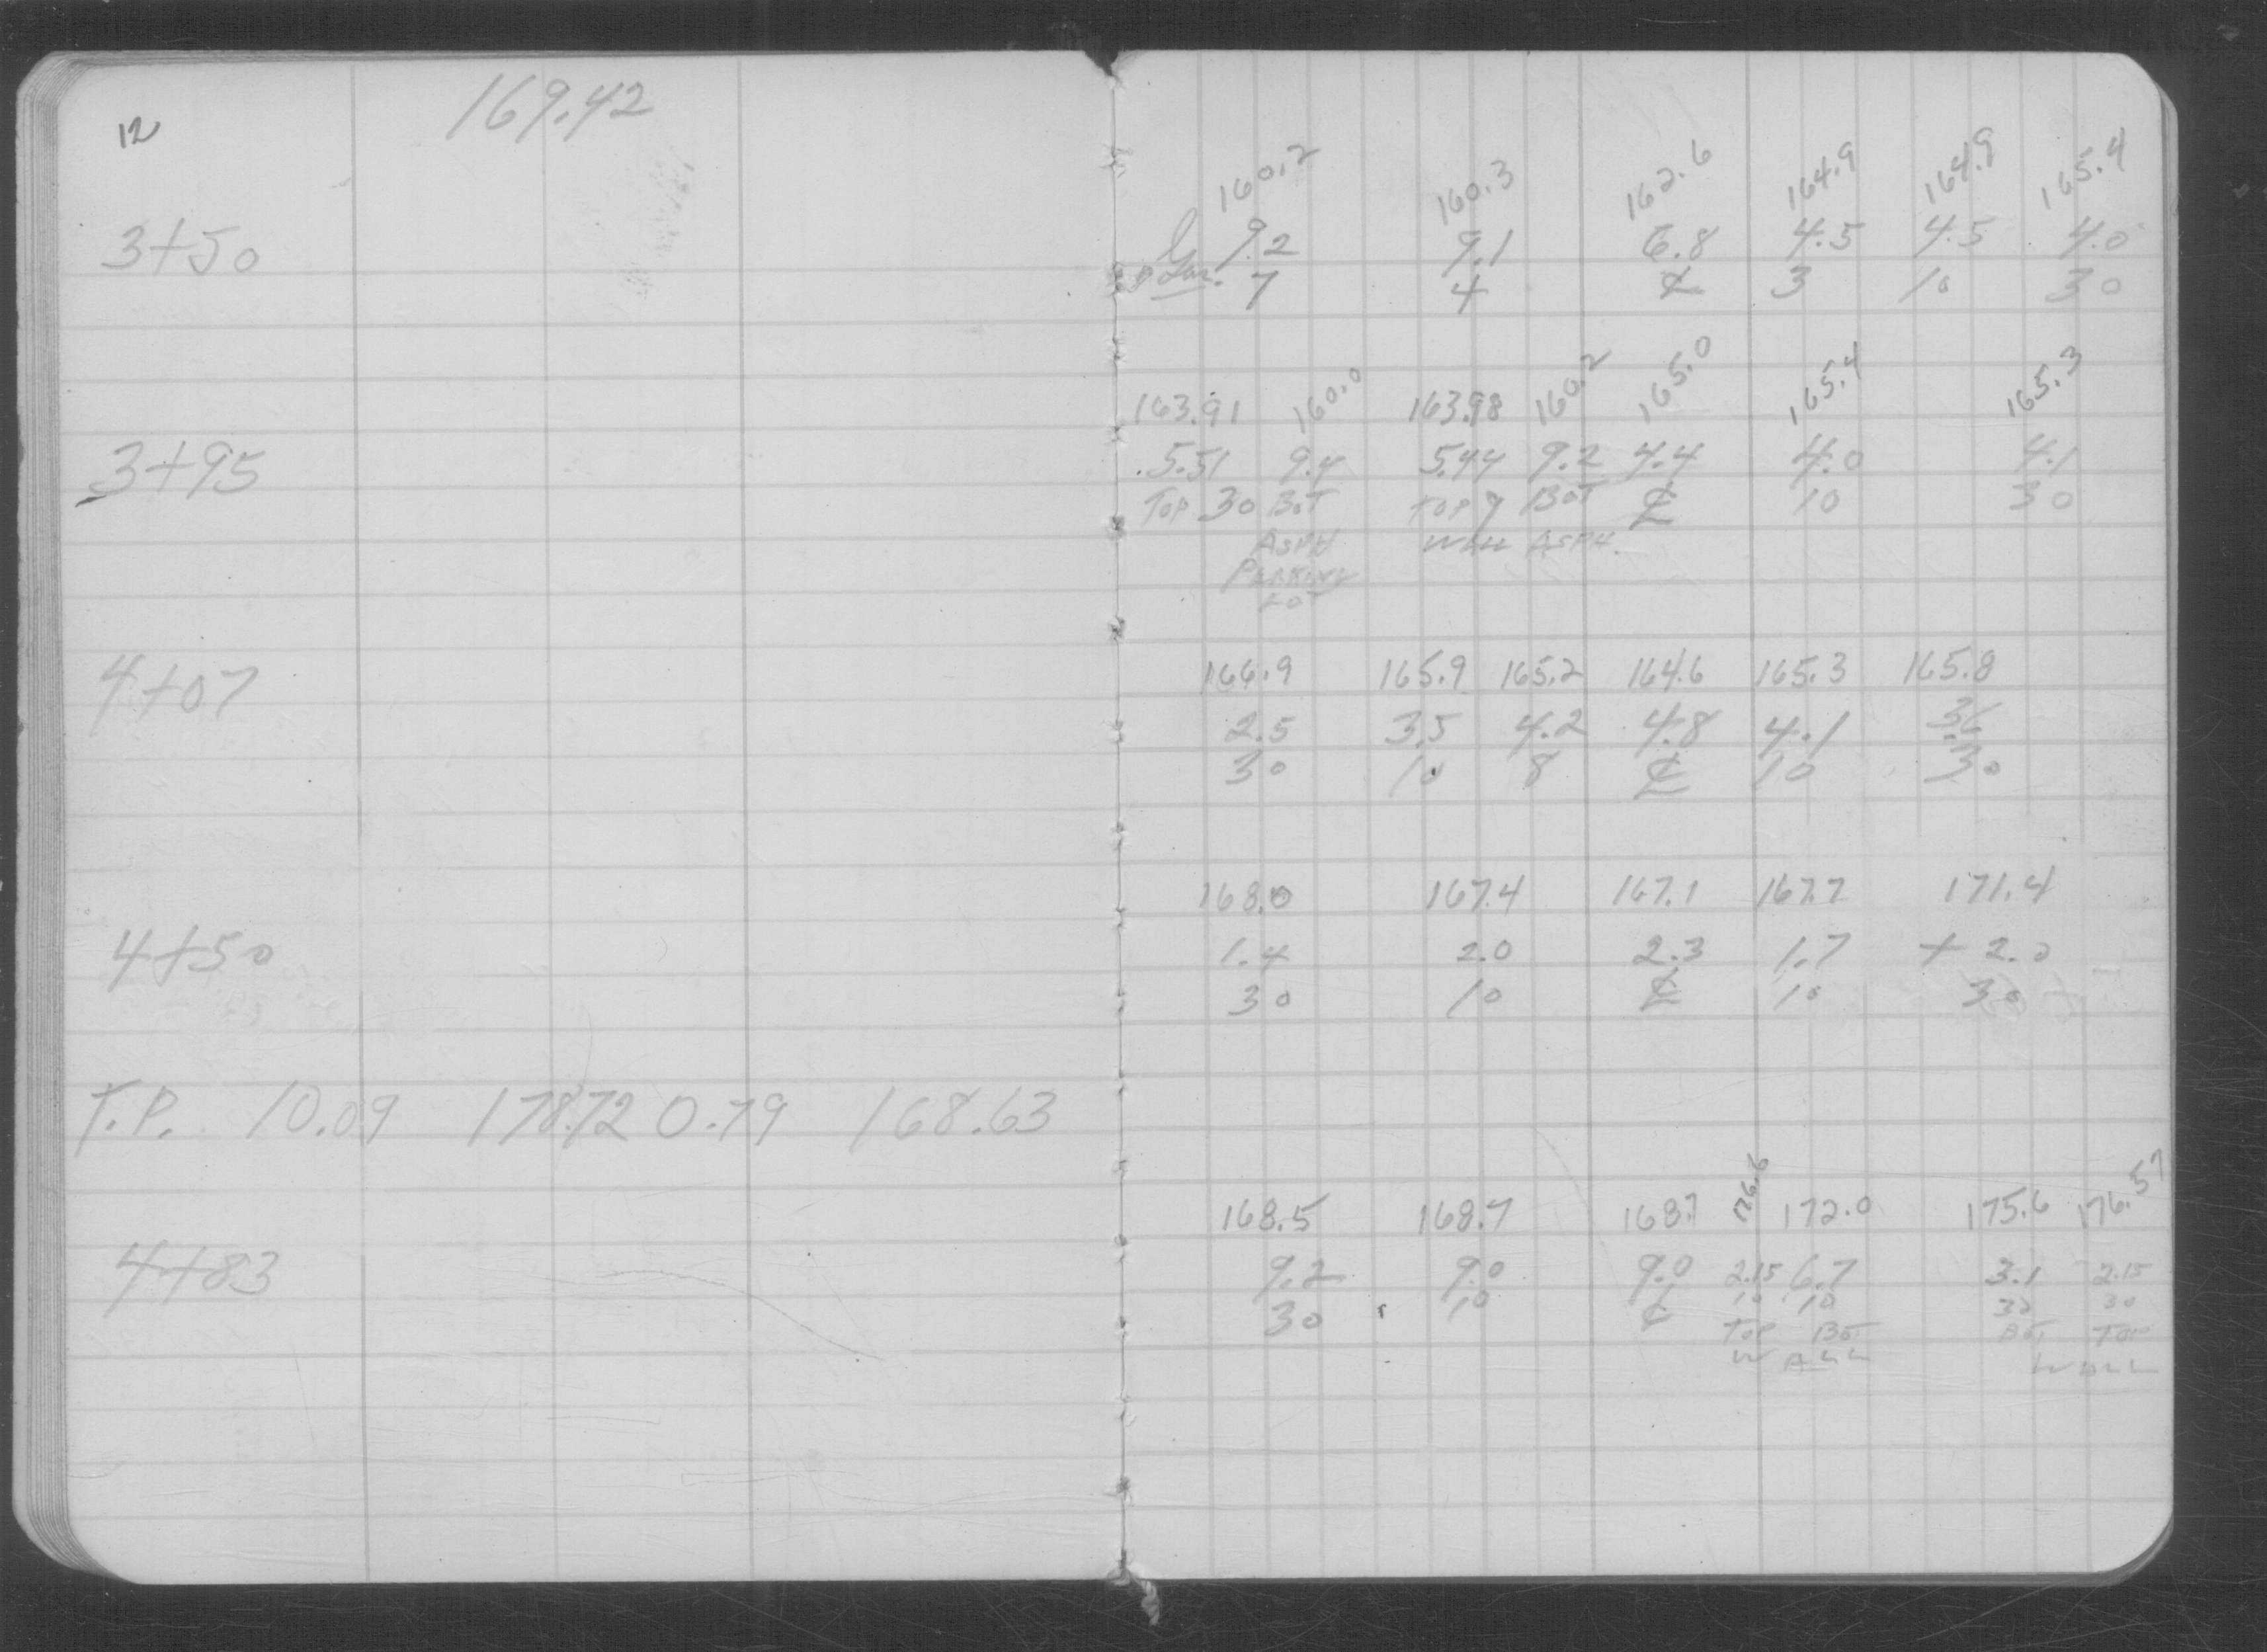 12
169.42
160.2 160.3 162.6 164.9 164.9 165.4
3+50
9.2 9.1 6.8 4.5 4.5 4.0
Gar. 7 4 ℄ 3 10 30
163.91 160.0 163.98 160.2 165.0 165.4 165.3
3+95
5.51 9.4 5.44 9.2 4.4 4.0 4.1
TOP 30 BOT TOP 7 BOT ℄ 10 30
ASPH WALL ASPH.
PARKING
LOT
166.9 165.9 165.2 164.6 165.3 165.8
4+07
2.5 3.5 4.2 4.8 4.1 3.6
30 10 8 ℄ 10 30
168.0 167.4 167.1 167.7 171.4
4+50
1.4 2.0 2.3 1.7 + 2.0
30 10 ℄ 10 30
T.P. 10.09 178.72 0.79 168.63
168.5 168.7 168.7 176.6 172.0 175.6 176.57
4+83
9.2 9.0 9.0 2.15 6.7 3.1 2.15
30 10 ℄ 10 10 30 30
TOP BOT BOT TOP
WALL WALL